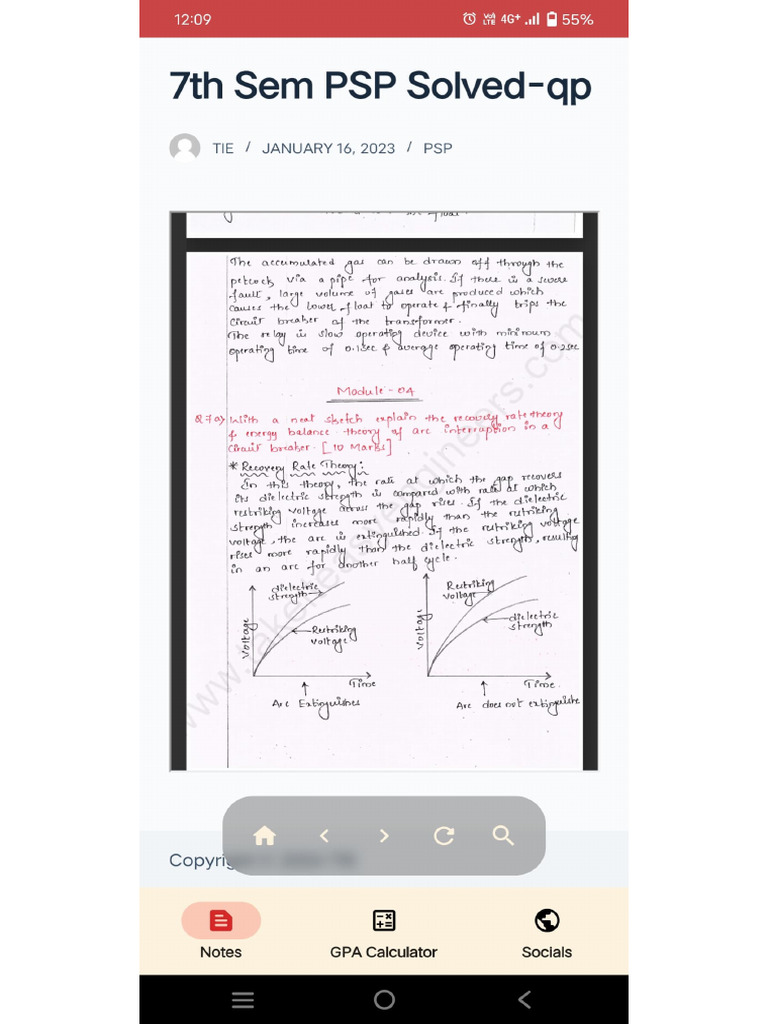 12:09 Vo) LTE 4G+ 55%
7th Sem PSP Solved-qp
TIE / JANUARY 16, 2023 / PSP
The accumulated gas can be drawn off through the
petcock via a pipe for analysis. If there is a severe
fault, large volume of gases are produced which
causes the lower float to operate & finally trips the
circuit breaker of the transformer.
The relay is slow operating device with minimum
operating time of 0.1sec & average operating time of 0.2sec
Module - 04
Q 7 a) With a neat sketch explain the recovery rate theory
& energy balance theory of arc interruption in a
circuit breaker. [10 Marks]
* Recovery Rate Theory:
In this theory, the rate at which the gap recovers
its dielectric strength is compared with rate at which
restriking voltage across the gap rises. If the dielectric
strength increases more rapidly than the restriking
voltage, the arc is extinguished. If the restriking voltage
rises more rapidly than the dielectric strength, resulting
in an arc for another half cycle.
dielectric
strength
Restriking
voltage
Voltage
Time
Arc Extinguishes
Restriking
voltage
dielectric
strength
Voltage
Time.
Arc does not extinguishe
Copyrig
Notes
GPA Calculator
Socials